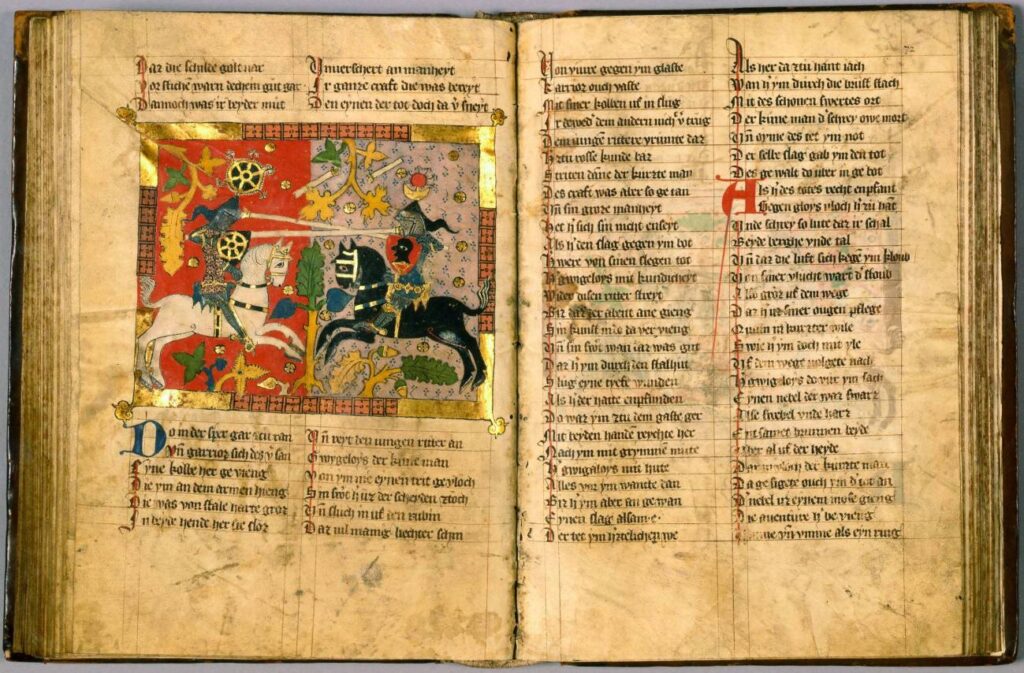 Dar die schilde golt var
Vorstichē warn dechein gut gar
Dannoch was ir beyder mut
Vnverschert an manheyt
Ir ganze craft die was bereyt
Den eynen der tot doch da v̄ sneyt
Do in der sper gar zcu ran
Vn̄ garrior sich des v̄ san
Eyne kolle her ge vieng
Die ym an dem armen hieng
Die was von stale harte groz
In beyde hende her sie sloz
Vn̄ reyt den iungen ritter an
Gwygeloys der kune man
Von ym me eynen teit gevloch
Sin swt̄ h̄ uz der scheyden zcoch
Vn̄ sluch in uf den rubin
Daz vil manig liechter schin
Von viure gegen ym glaste
Karrior ouch vaste
Mit siner kolben uf in slug
Ir dewed̓ dem andern nich v̄ trug
Dem iungē rittere
H̓ zcu rosse kunde dar
Striten dane der kurzte man
Des craft was aber so ge tan
Vn̄ sin groze manheyt
Het h̓ sich nicht
Als h̓ den slag gegen ym bot
H̓ were von sinen slegen tot
H̓ gwigeloys mit kundicheyt
Wider disen ritter streyt
Biz daz
Sin kunst
Vn̄ sin swt̄ wan iz was gut
Daz h̓ ym durch den stalhut
Slug eyne tyefe wunden
Als h̓ der hatte enpfunden
Do war ym zcu dem gaste ger
Mit beyden handē reychte her
Nach ym mit grymme mute
H̓ gwigaloys mit hute
Alles vor ym wante dan
Biz h̓ ym aber an gewan
Eynen slag alsam e
Der tet ym h̓zcelichen we
72
Als her da zcu hant iach
Wan h̓ ym durch die brust stach
Mit des schonen swertes ort
Der kune man d̓ schrey owe mort
Vn̄ oyme des tet ym not
Der selbe slag gab ym den tot
Des ge walt do uber in ge bot
Als h̓ des todes recht enpfant
Gegen gloys vloch h̓ zcu hāt
Vnde schrey so lute daz ir schal
Beyde berghe vnde tal
Vn̄ daz die luft sich kegē ym kloub
Von siner vlucht wart d̓ stoub
Also groz uf dem wege
Daz h̓ uz siner ougen pflege
Quam in kurzter wile
Swie h̓ ym doch mit yle
Vf dem wege volgete nach
H̓ gwigeloys do vor ym sach
Eynen nebel der waz swarz
Alse swebel vnde harz
beyde
Aber al uf der heyde
der kurzte man
Da ge sigete ouch ym d̓ tot an
D̓ nebel uz eynem mose gieng
Die auenture h̓ be vieng
vn̄ ymme als eyn ring